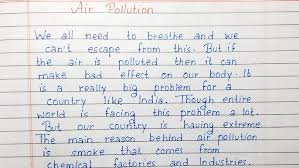 Air Pollution
We all need to breathe and we
can't escape from this. But if
the air is polluted then it can
make bad effect on our body. It
is a really big problem for a
country like India. Though entire
world is facing this problem a lot.
But our country is having extreme.
The main reason behind air pollution
is smoke that comes from
chemical factories and Industries.